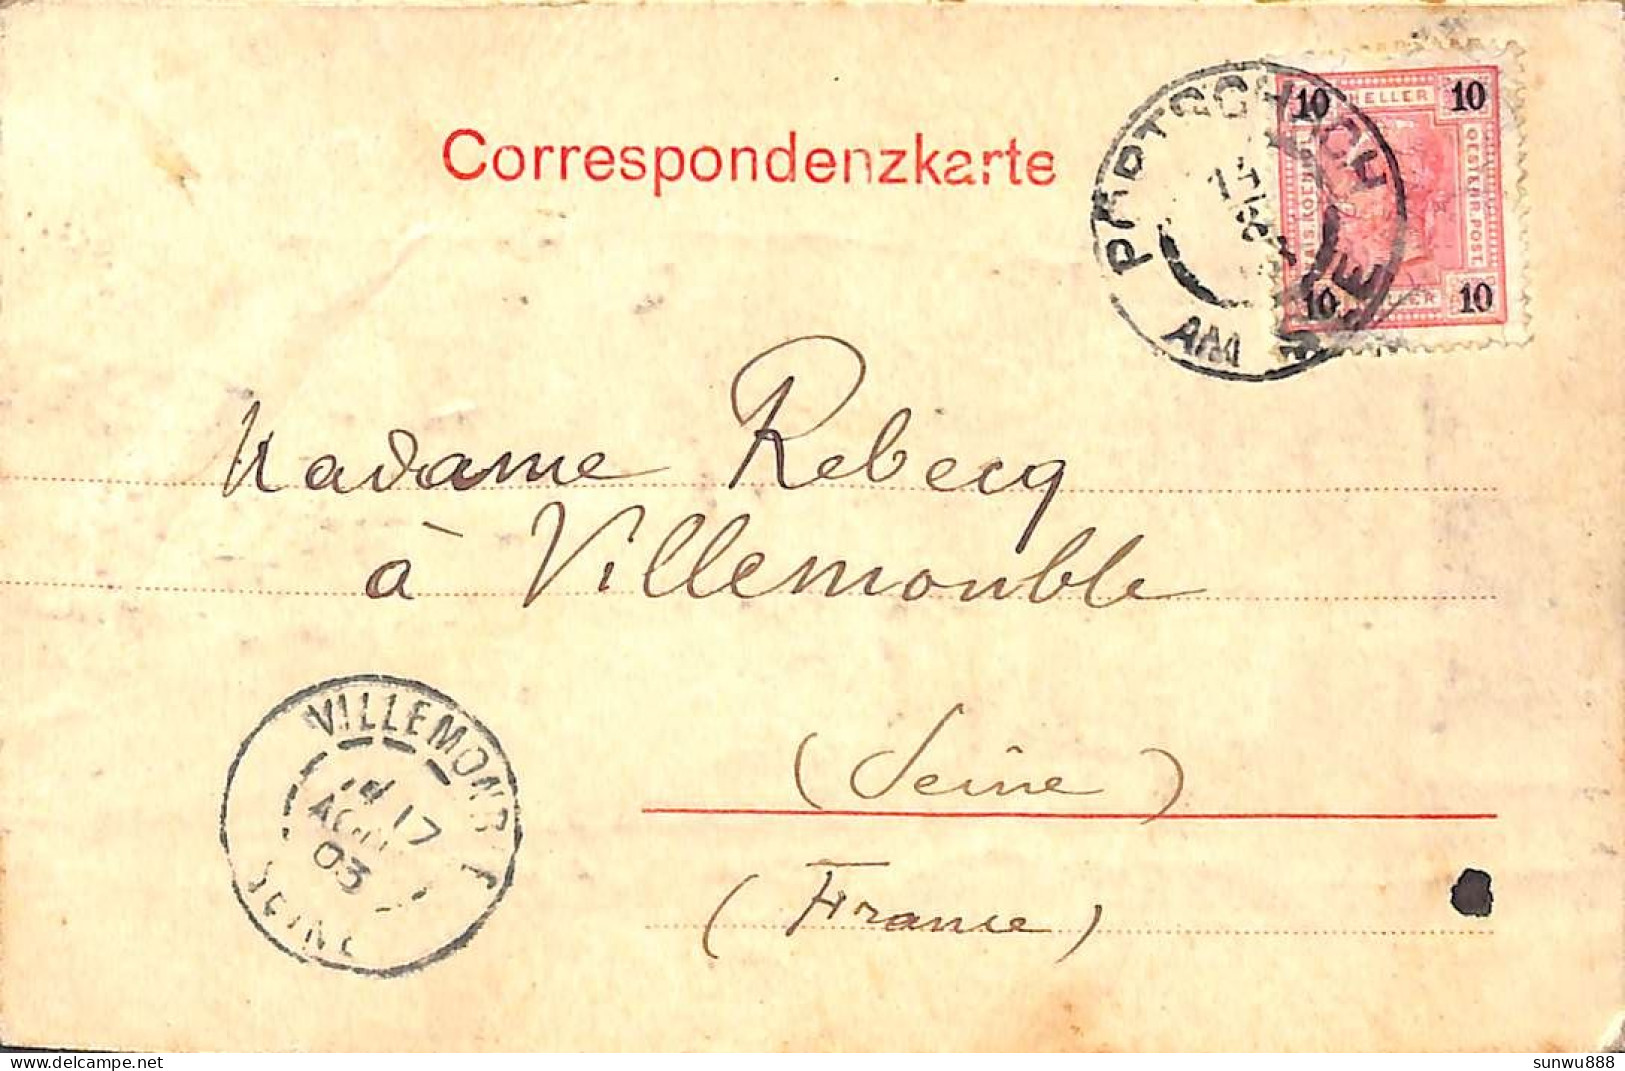 Correspondenzkarte
10 HELLER 10
OESTERR. POST.
10 HELLER 10
PÖRTSCHACH
AM SEE
Madame Rebecq
à Villemomble
(Seine)
(France)
VILLEMOMBLE
17
AOUT
03
SEINE
sunwu888